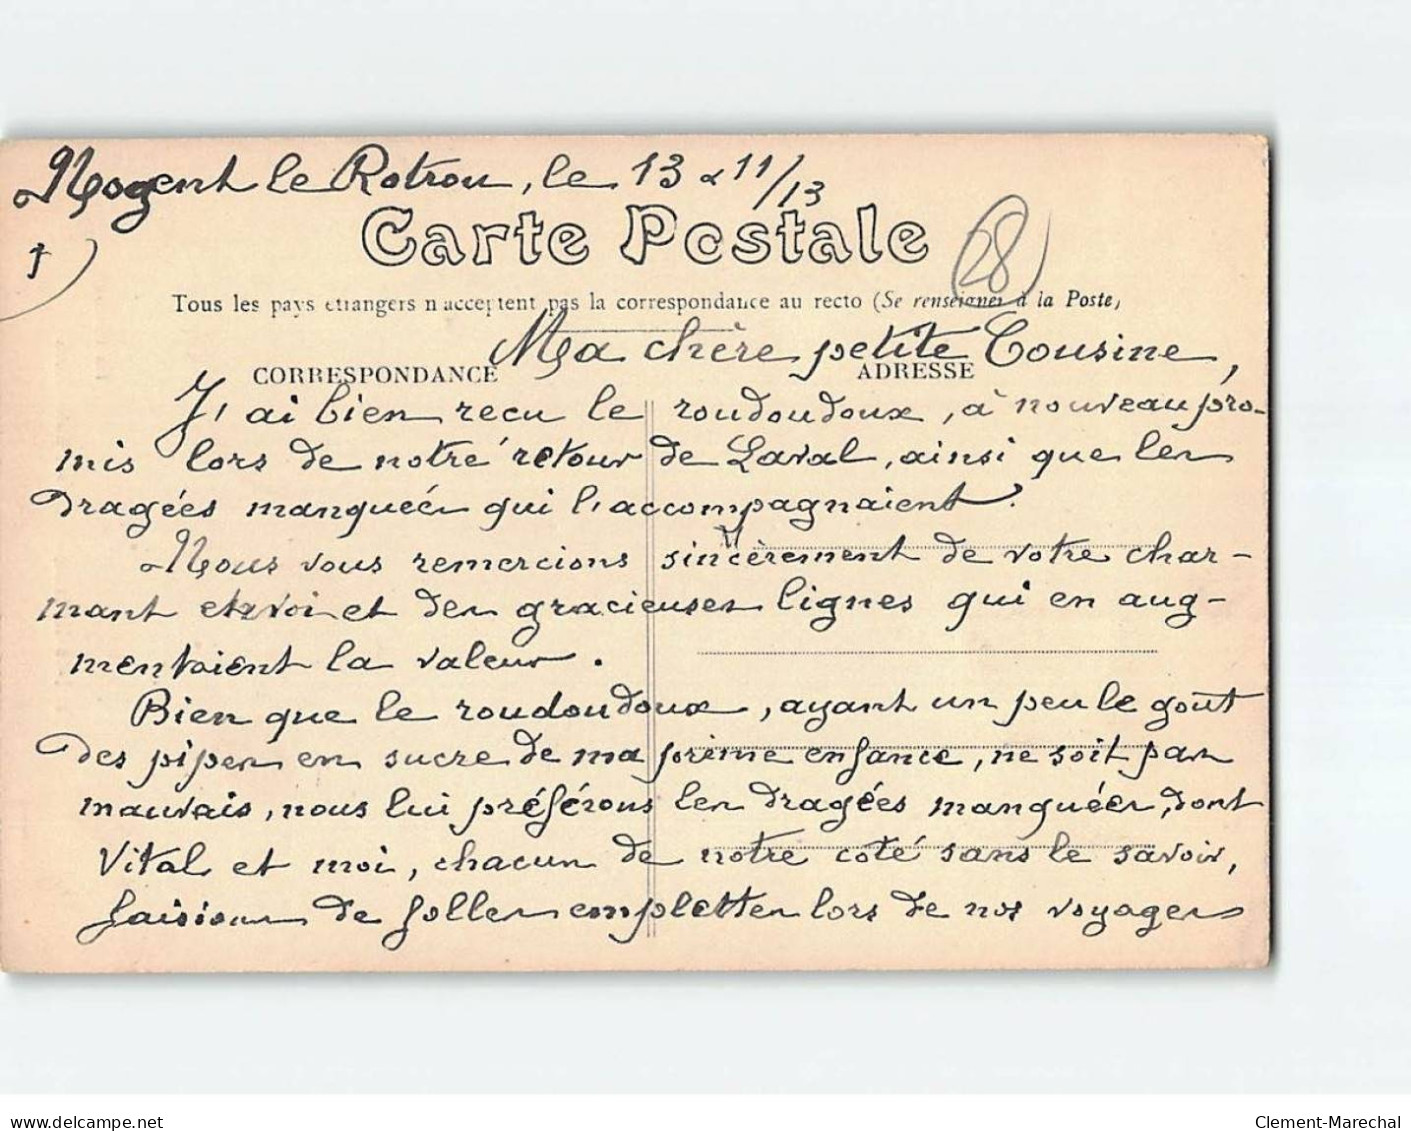 Nogent le Rotrou, le 13 x 11/13
1
28
Carte Postale
Tous les pays étrangers n'acceptent pas la correspondance au recto (Se renseigner à la Poste)
Ma chère petite Cousine,
CORRESPONDANCE
ADRESSE
J'ai bien recu le roudoudoux, à nouveau pro-
mis lors de notre retour de Laval, ainsi que les
dragées manquées qui l'accompagnaient.
Nous vous remercions sincèrement de votre char-
mant envoi et des gracieuses lignes qui en aug-
mentaient la valeur.
Bien que le roudoudoux, ayant un peu le goût
des pipes en sucre de ma prime enfance, ne soit pas
mauvais, nous lui préférons les dragées manquées, dont
Vital et moi, chacun de notre côté sans le savoir,
faisions de folles emplettes lors de nos voyages
delcampe.net
Clement-Marechal